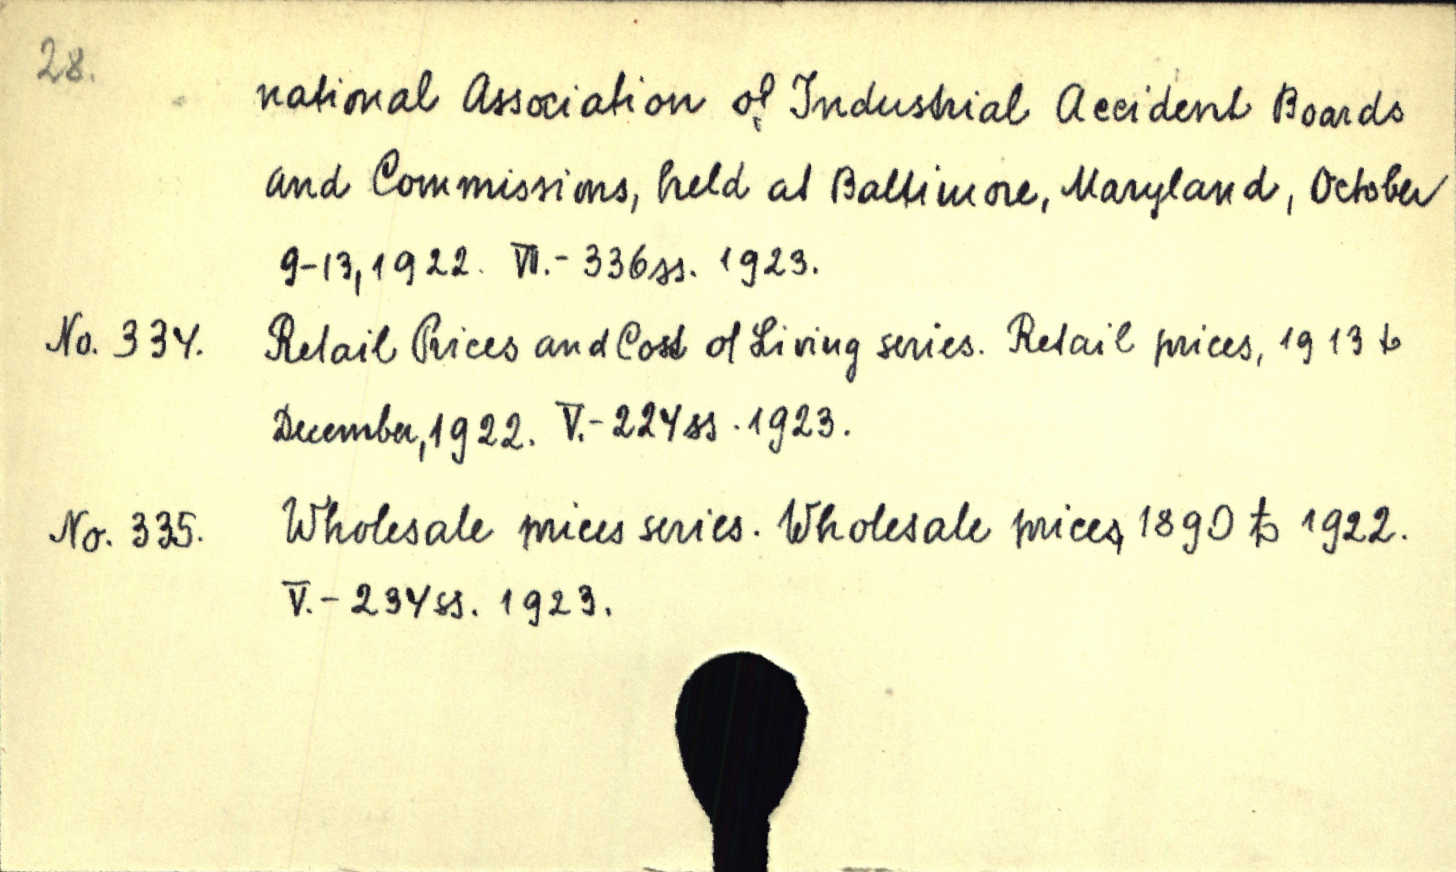 28.
national Association of Industrial Accident Boards
and Commissions, held at Baltimore, Maryland, October
9-13, 1922. VII.- 336ss. 1923.
No. 334. Retail Prices and Cost of Living series. Retail prices, 1913 to
December, 1922. V.- 224ss. 1923.
No. 335. Wholesale prices series. Wholesale prices, 1890 to 1922.
V.- 234ss. 1923.